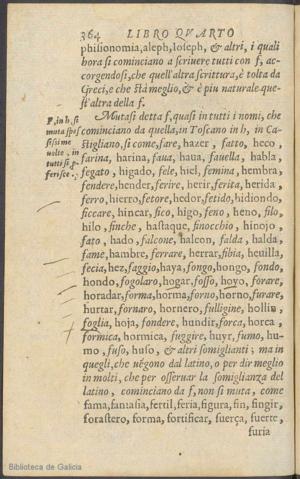 364 LIBRO QVARTO
philionomia, aleph, Ioseph, & altri, i quali
hora si cominciano a scriuere tutti con f, ac-
corgendosi, che quell'altra scrittura, è tolta da
Greci, e che stà meglio, & è piu naturale que-
st'altra della f.
Mutasi detta f, quasi in tutti i nomi, che
cominciano da quella, in Toscano in h, in Ca-
stigliano, si come, fare, hazer, fatto, heco,
farina, harina, faua, haua, fauella, habla,
fegato, higado, fele, hiel, femina, hembra,
fendere, hender, ferire, herir, ferita, herida,
ferro, hierro, fetore, hedor, fetido, hidiondo,
ficcare, hincar, fico, higo, feno, heno, filo,
hilo, finche, hastaque, finocchio, hinojo,
fato, hado, falcone, halcon, falda, halda,
fame, hambre, ferrare, herrar, fibia, heuilla,
fecia, hez, faggio, haya, fongo, hongo, fondo,
hondo, fogolaro, hogar, fosso, hoyo, forare,
horadar, forma, horma, forno, horno, furare,
hurtar, fornaro, hornero, fuligine, hollin,
foglia, hoja, fondere, hundir, forca, horca,
formica, hormica, fuggire, huyr, fumo, hu-
mo, fuso, huso, & altri somiglianti; ma in
quegli, che uẽgono dal latino, o per dir meglio
in molti, che per osseruar la somiglianza del
latino, cominciano da f, non si muta, come
fama, fantasia, fertil, feria, figura, fin, fingir,
forastero, forma, fortificar, fuerça, fuerte,
furia
F, in h, si
muta spes
sissime
uolte, in
tutti si p-
ferisce.
Biblioteca de Galicia